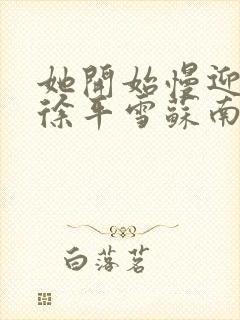 她開始慢迎
徐平雪蘇南
白落茗